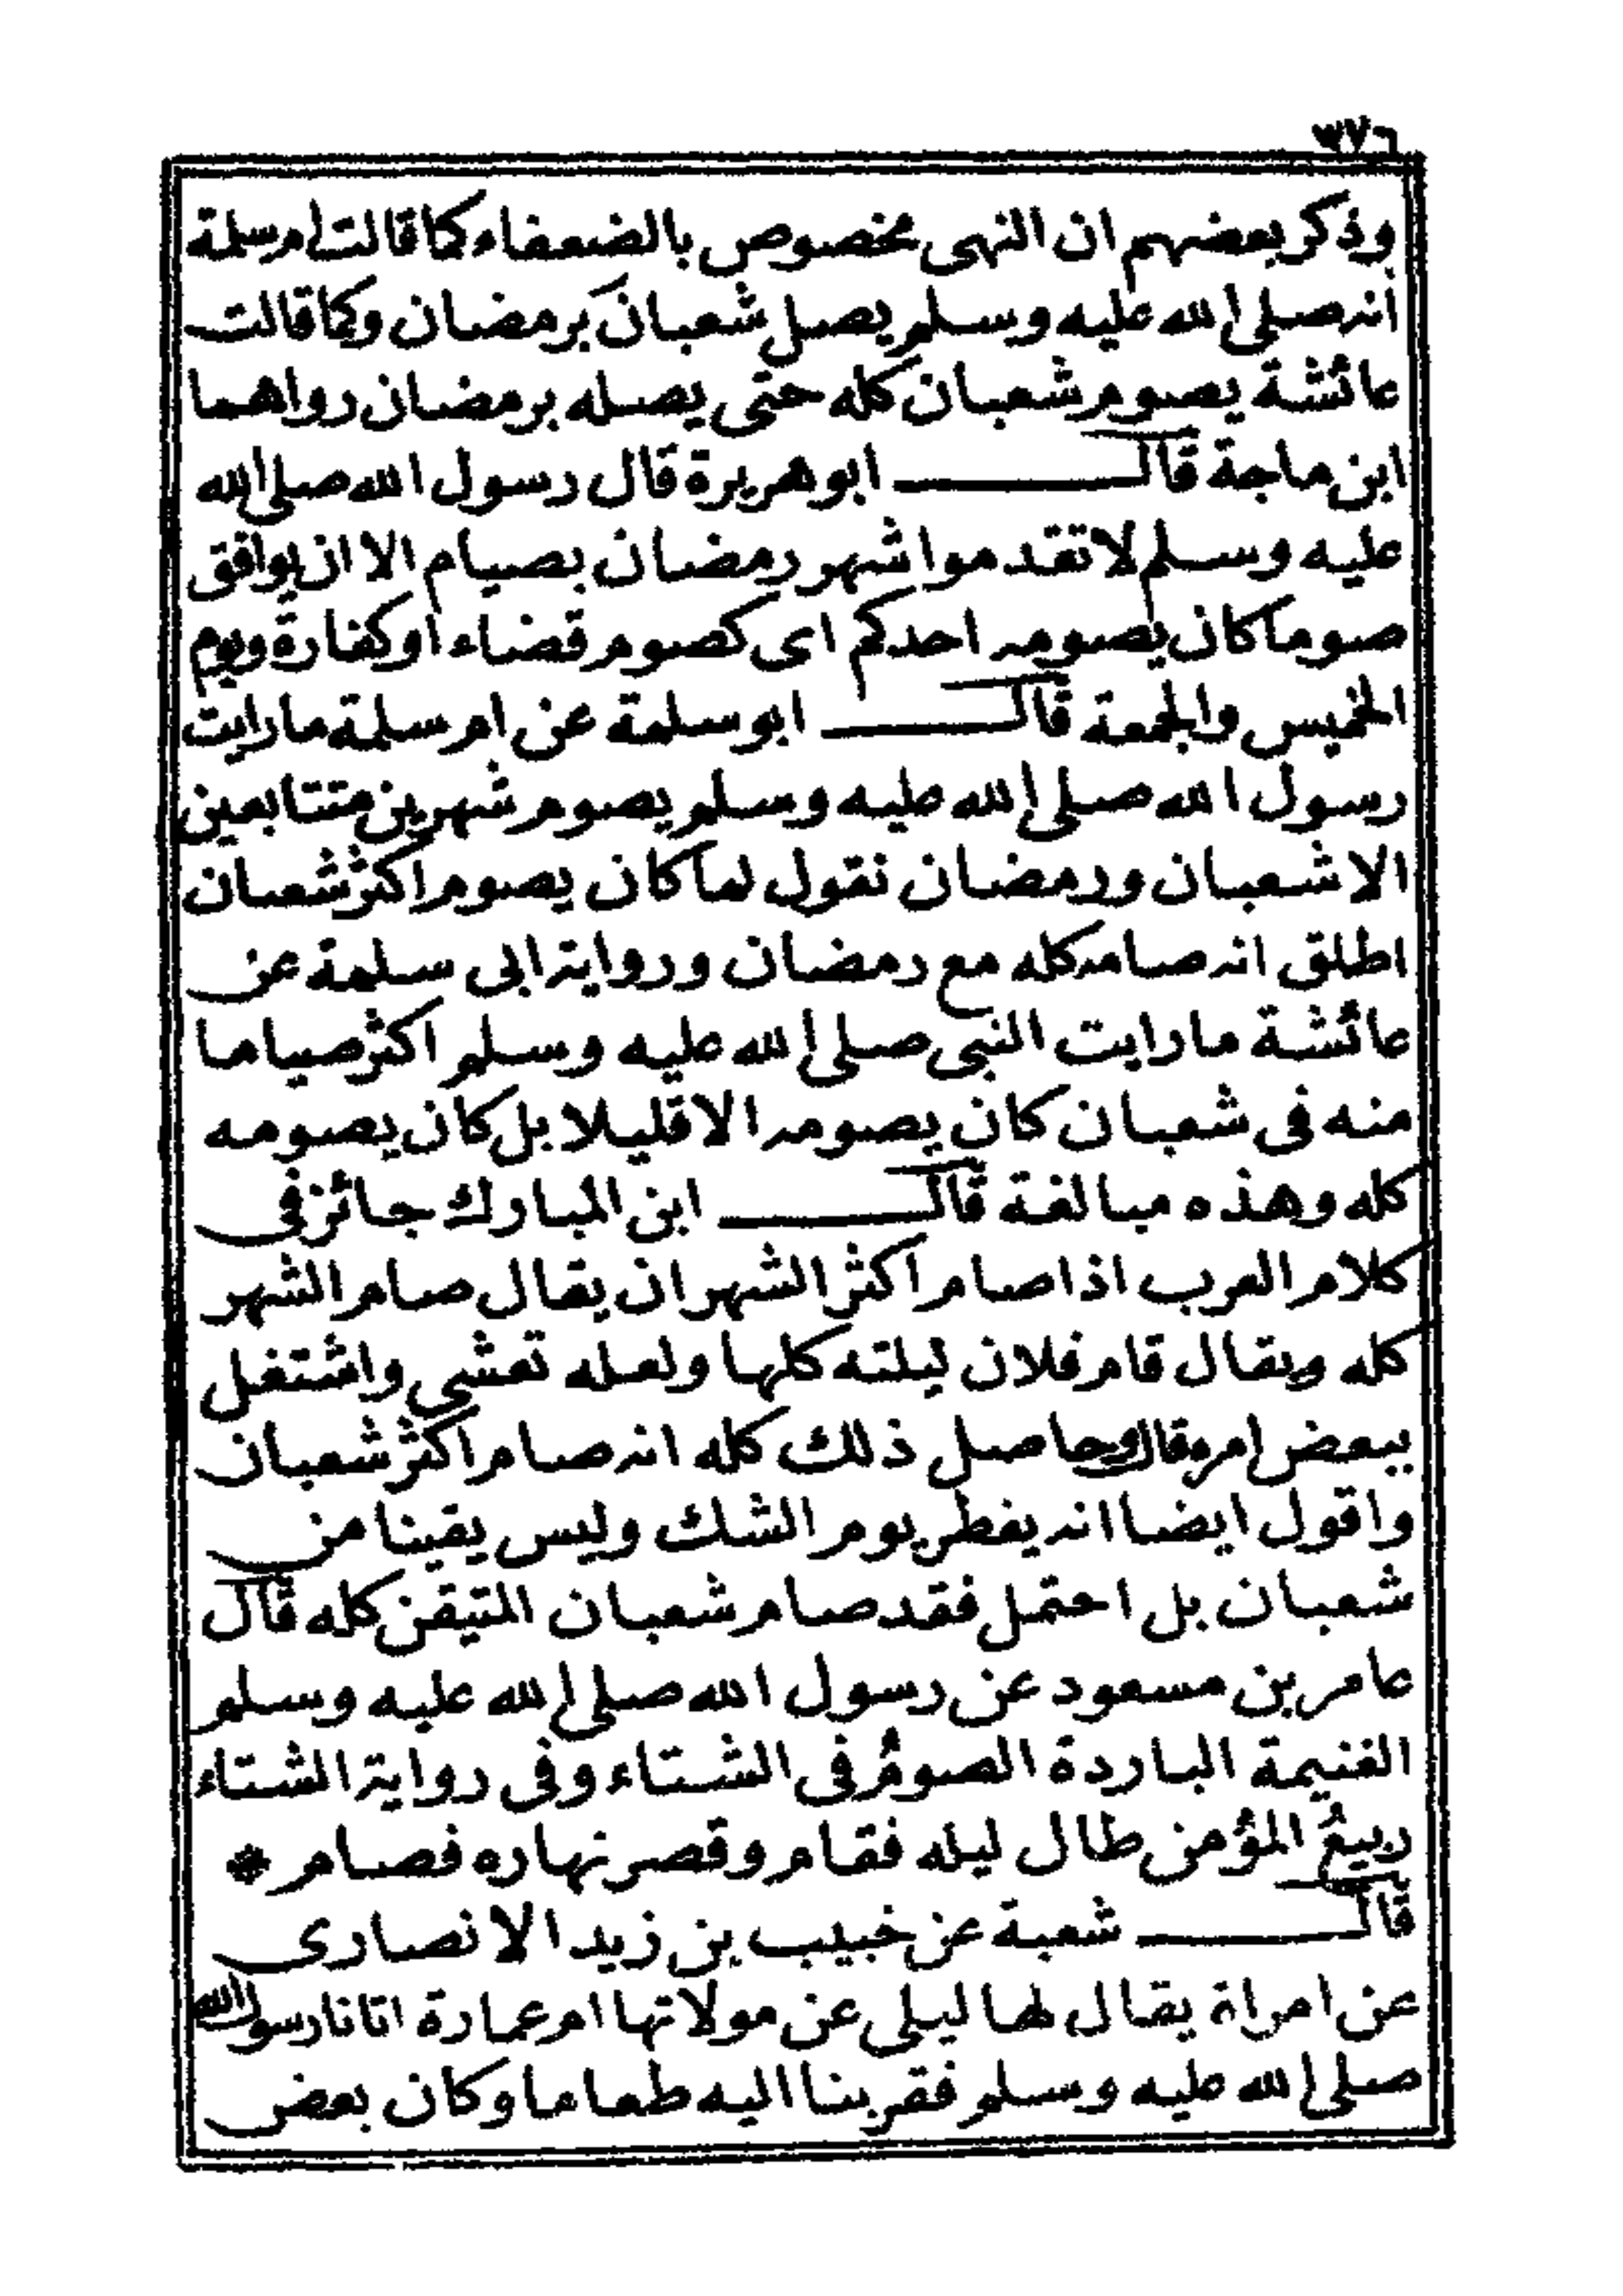 ٣٧٦
وذكر بعضهم ان النهى مخصوص بالضعفاء كما قالت ام سلمة
أنه صلى الله عليه وسلم يصل شعبان برمضان وكما قالت
عائشة يصوم شعبان كله حتى يصله برمضان رواهما
ابن ماجة قال ابو هريرة قال رسول الله صلى الله
عليه وسلم لا تقدموا شهر رمضان بصيام الا ان يوافق
صوما كان يصومه احدكم اى كصوم قضاء او كفارة ويوم
الخميس والجمعة قال ابو سلمة عن ام سلمة ما رايت
رسول الله صلى الله عليه وسلم يصوم شهرين متتابعين
الا شعبان ورمضان نقول لما كان يصوم اكثر شعبان
اطلق انه صامه كله مع رمضان ورواية ابى سلمة عن
عائشة ما رايت النبى صلى الله عليه وسلم اكثر صياما
منه فى شعبان كان يصومه الا قليلا بل كان يصومه
كله وهذه مبالغة قال ابن المبارك جائز فى
كلام العرب اذا صام اكثر الشهر ان يقال صام الشهر
كله ويقال قام فلان ليلته كلها ولعله تعشى واشتغل
ببعض امره قال وحاصل ذلك كله انه صام اكثر شعبان
واقول ايضا انه يفطر يوم الشك وليس يقينا من
شعبان بل احتمل فقد صام شعبان المتيقن كله قال
عامر بن مسعود عن رسول الله صلى الله عليه وسلم
الغنيمة الباردة الصومُ فى الشتاء وفى رواية الشتاء
ربيعُ المؤمن طال ليله فقام وقصر نهاره فصام *
قال شعبة عن خبيب بن زيد الانصارى
عن امراة يقال لها ليلى عن مولاتها ام عمارة اتانا رسول الله
صلى الله عليه وسلم فقربنا اليه طعاما وكان بعض